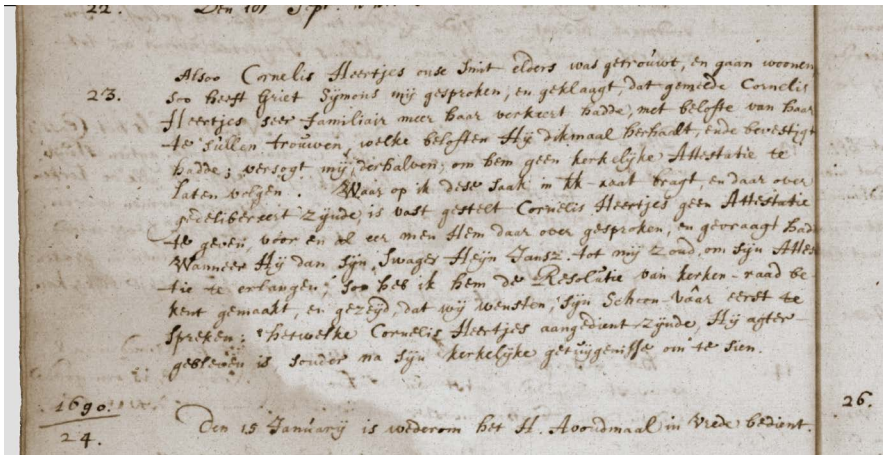 22. Den 10 Sept.
23. Alsoo Cornelis Heertjes onse Smit elders was getrouwt, en gaan woonen
soo heeft Griet Symons mij gesproken, en geklaagt, dat gemelde Cornelis
Heertjes seer familiair meer haar verkeert hadde, met belofte van haar
te sullen trouwen, welke beloften Hij dikmaal herhaalt, ende bevestigt
hadde; versogt mij, derhalven, om hem geen kerkelijke Attestatie te
laten volgen. Waar op ik dese saak in kk raat bragt, en daar over
gedelibereert zijnde, is vast gestelt Cornelis Heertjes geen Attestatie
te geven, vóór en al eer men Hem daar over gesproken, en gevraagt had
Wanneer Hij dan sijn Swager Heijn Jansz. tot mij zond, om sijn Attes
tie te erlangen; soo heb ik hem de Resolutie van kerken-raad be-
kent gemaakt, en gezeyd, dat wij wensten, sijn Schoon-váár eerst te
spreken; 't hetwelke Cornelis Heertjes aangedient zijnde, Hij agter-
gebleven is sonder na sijn kerkelijke getuijgenisse om te sien.
1690.
24. Den 15 Januarij is wederom het H. Avondmaal in Vrede bedient.
26.